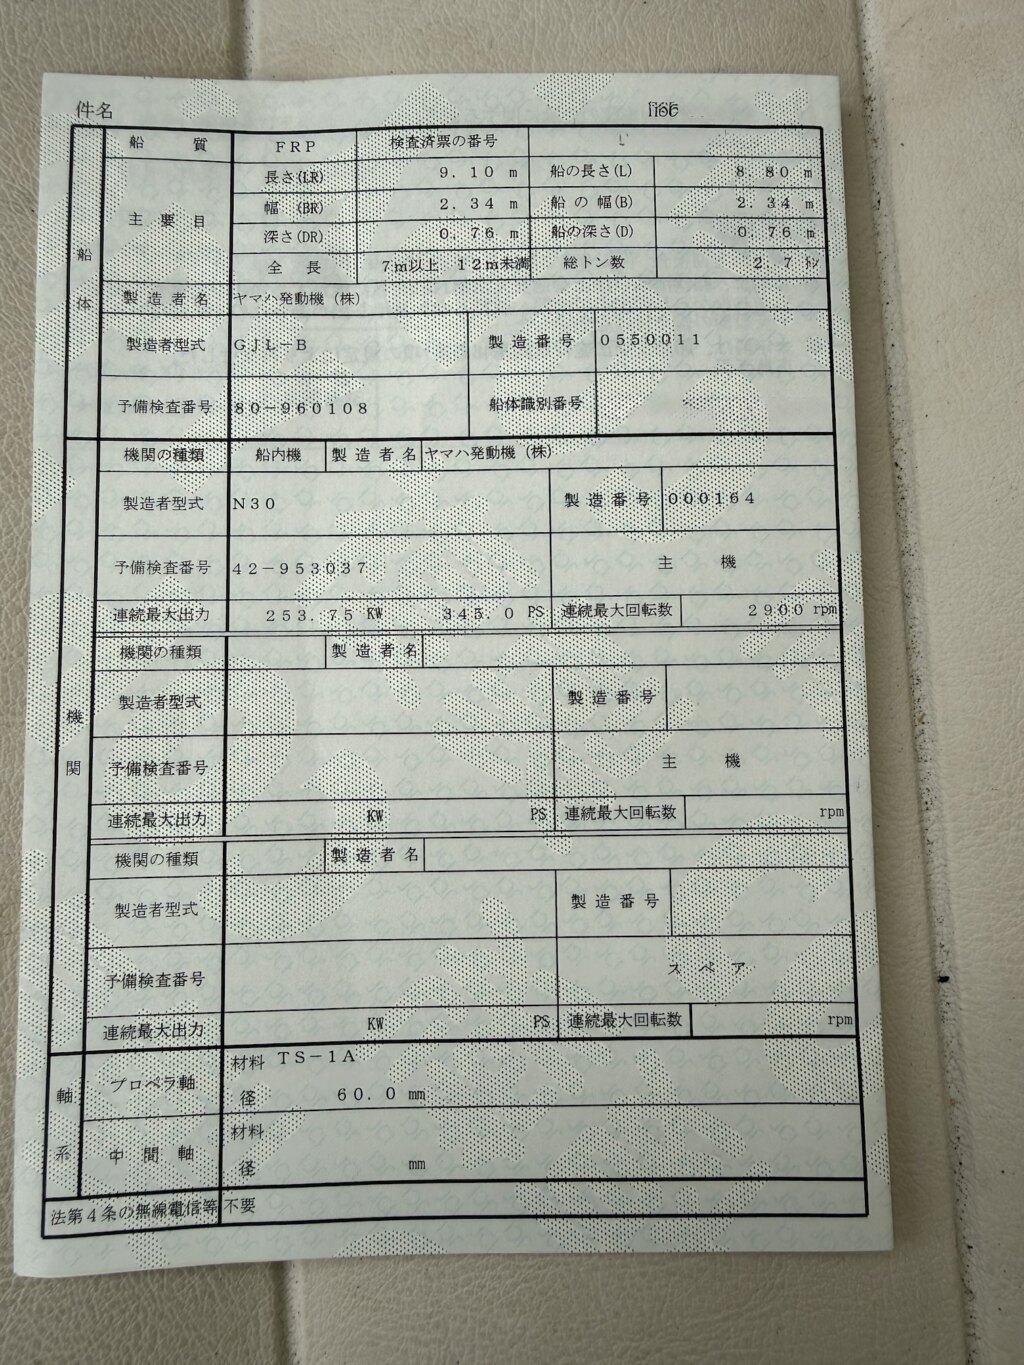 件名
船体
船質 FRP 検査済票の番号
主要目 長さ(LR) 9.10 m 船の長さ(L) 8.80 m
幅 (BR) 2.34 m 船の幅(B) 2.34 m
深さ(DR) 0.76 m 船の深さ(D) 0.76 m
全長 7m以上 12m未満 総トン数 2.7 トン
製造者名 ヤマハ発動機（株）
製造者型式 GJL-B 製造番号 0550011
予備検査番号 80-960108 船体識別番号 -
機関
機関の種類 船内機 製造者名 ヤマハ発動機（株）
製造者型式 N30 製造番号 000164
予備検査番号 42-953037 主機
連続最大出力 253.75 KW 345.0 PS 連続最大回転数 2900 rpm
機関の種類 製造者名
製造者型式 製造番号
予備検査番号 主機
連続最大出力 KW PS 連続最大回転数 rpm
機関の種類 製造者名
製造者型式 製造番号
予備検査番号 スペア
連続最大出力 KW PS 連続最大回転数 rpm
軸系
プロペラ軸 材料 TS-1A
径 60.0 mm
中間軸 材料
径 mm
法第4条の無線電信等 不要